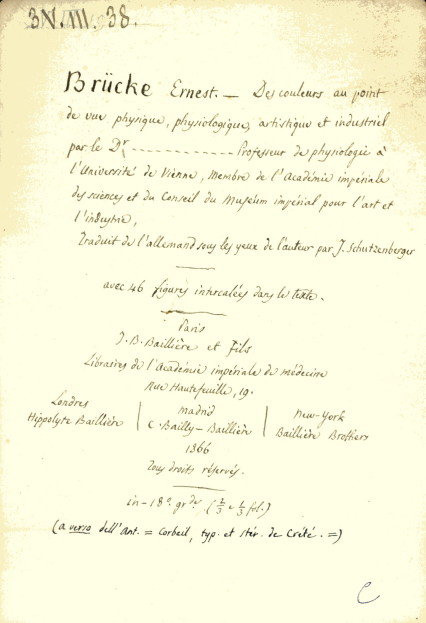 3N.III.38.
Brücke Ernest. — Des couleurs au point
de vue physique, physiologique, artistique et industriel
par le Dr ------------- Professeur de physiologie à
l'Université de Vienne, membre de l'Académie impériale
des sciences et du Conseil du Muséum impérial pour l'art et
l'industrie,
Traduit de l'allemand sous les yeux de l'auteur par J. Schutzenberger
avec 46 figures intercalées dans le texte.
Paris
J. B. Baillière et Fils
Libraires de l'Académie impériale de médecine
Rue Hautefeuille, 19.
Londres | Madrid | New-York
Hippolyte Baillière | C. Bailly-Baillière | Baillière Brothers
1866
Tous droits réservés.
in-18° gr.de (2/3 e 1/3 fol.)
(a verso dell'Ant. = Corbeil, typ. et stér. de Crété. =)